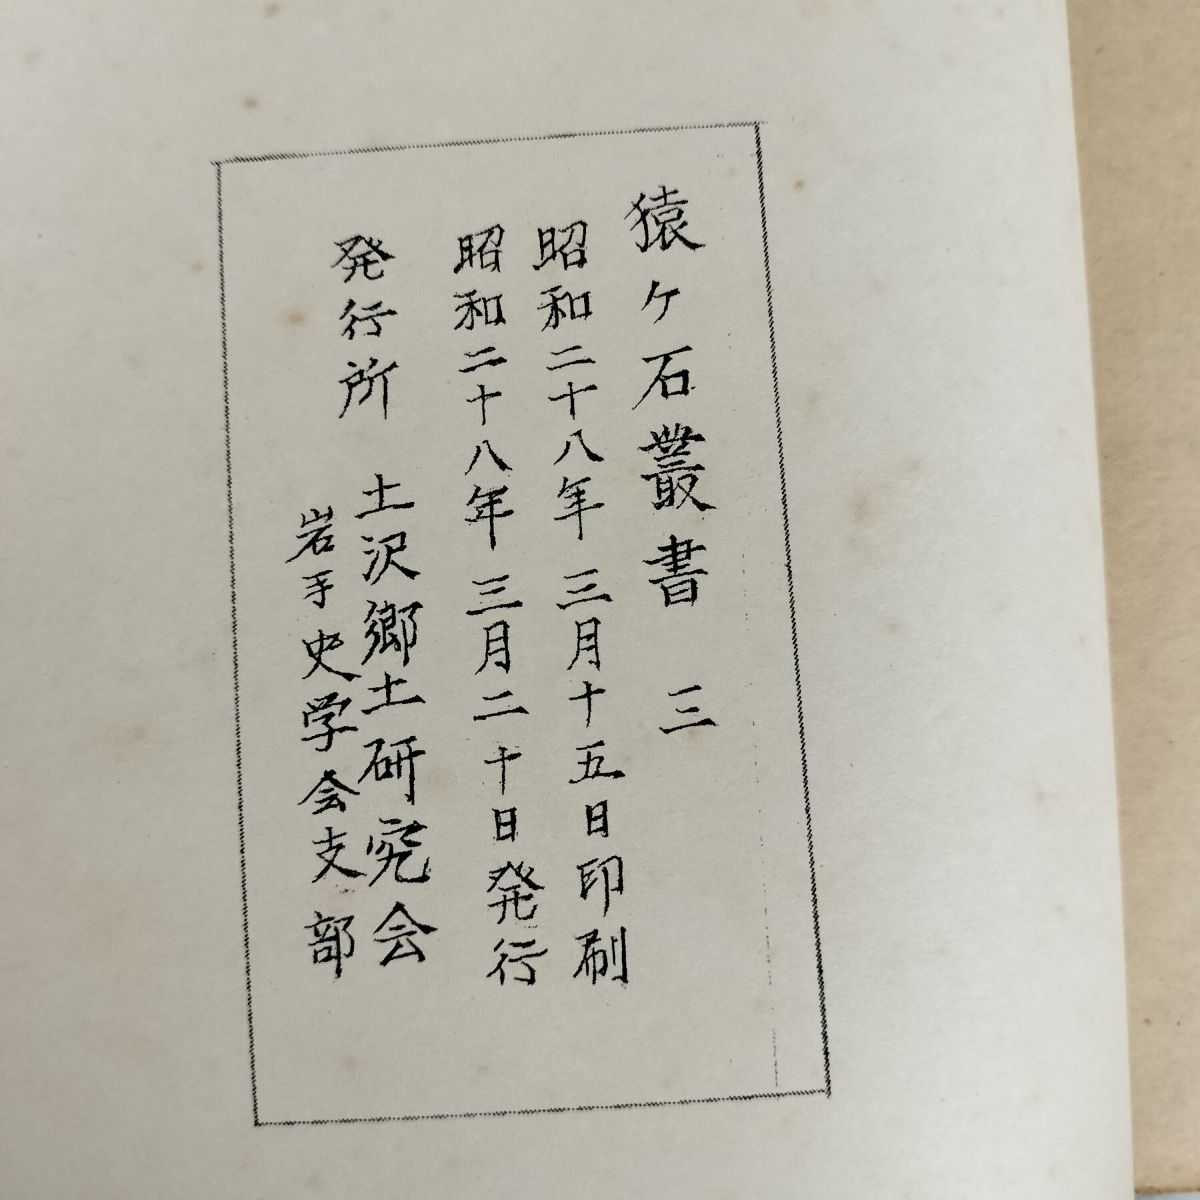 猿ケ石叢書 三
昭和二十八年 三月十五日印刷
昭和二十八年 三月二十日発行
発行所 土沢郷土研究会
岩手史学会支部